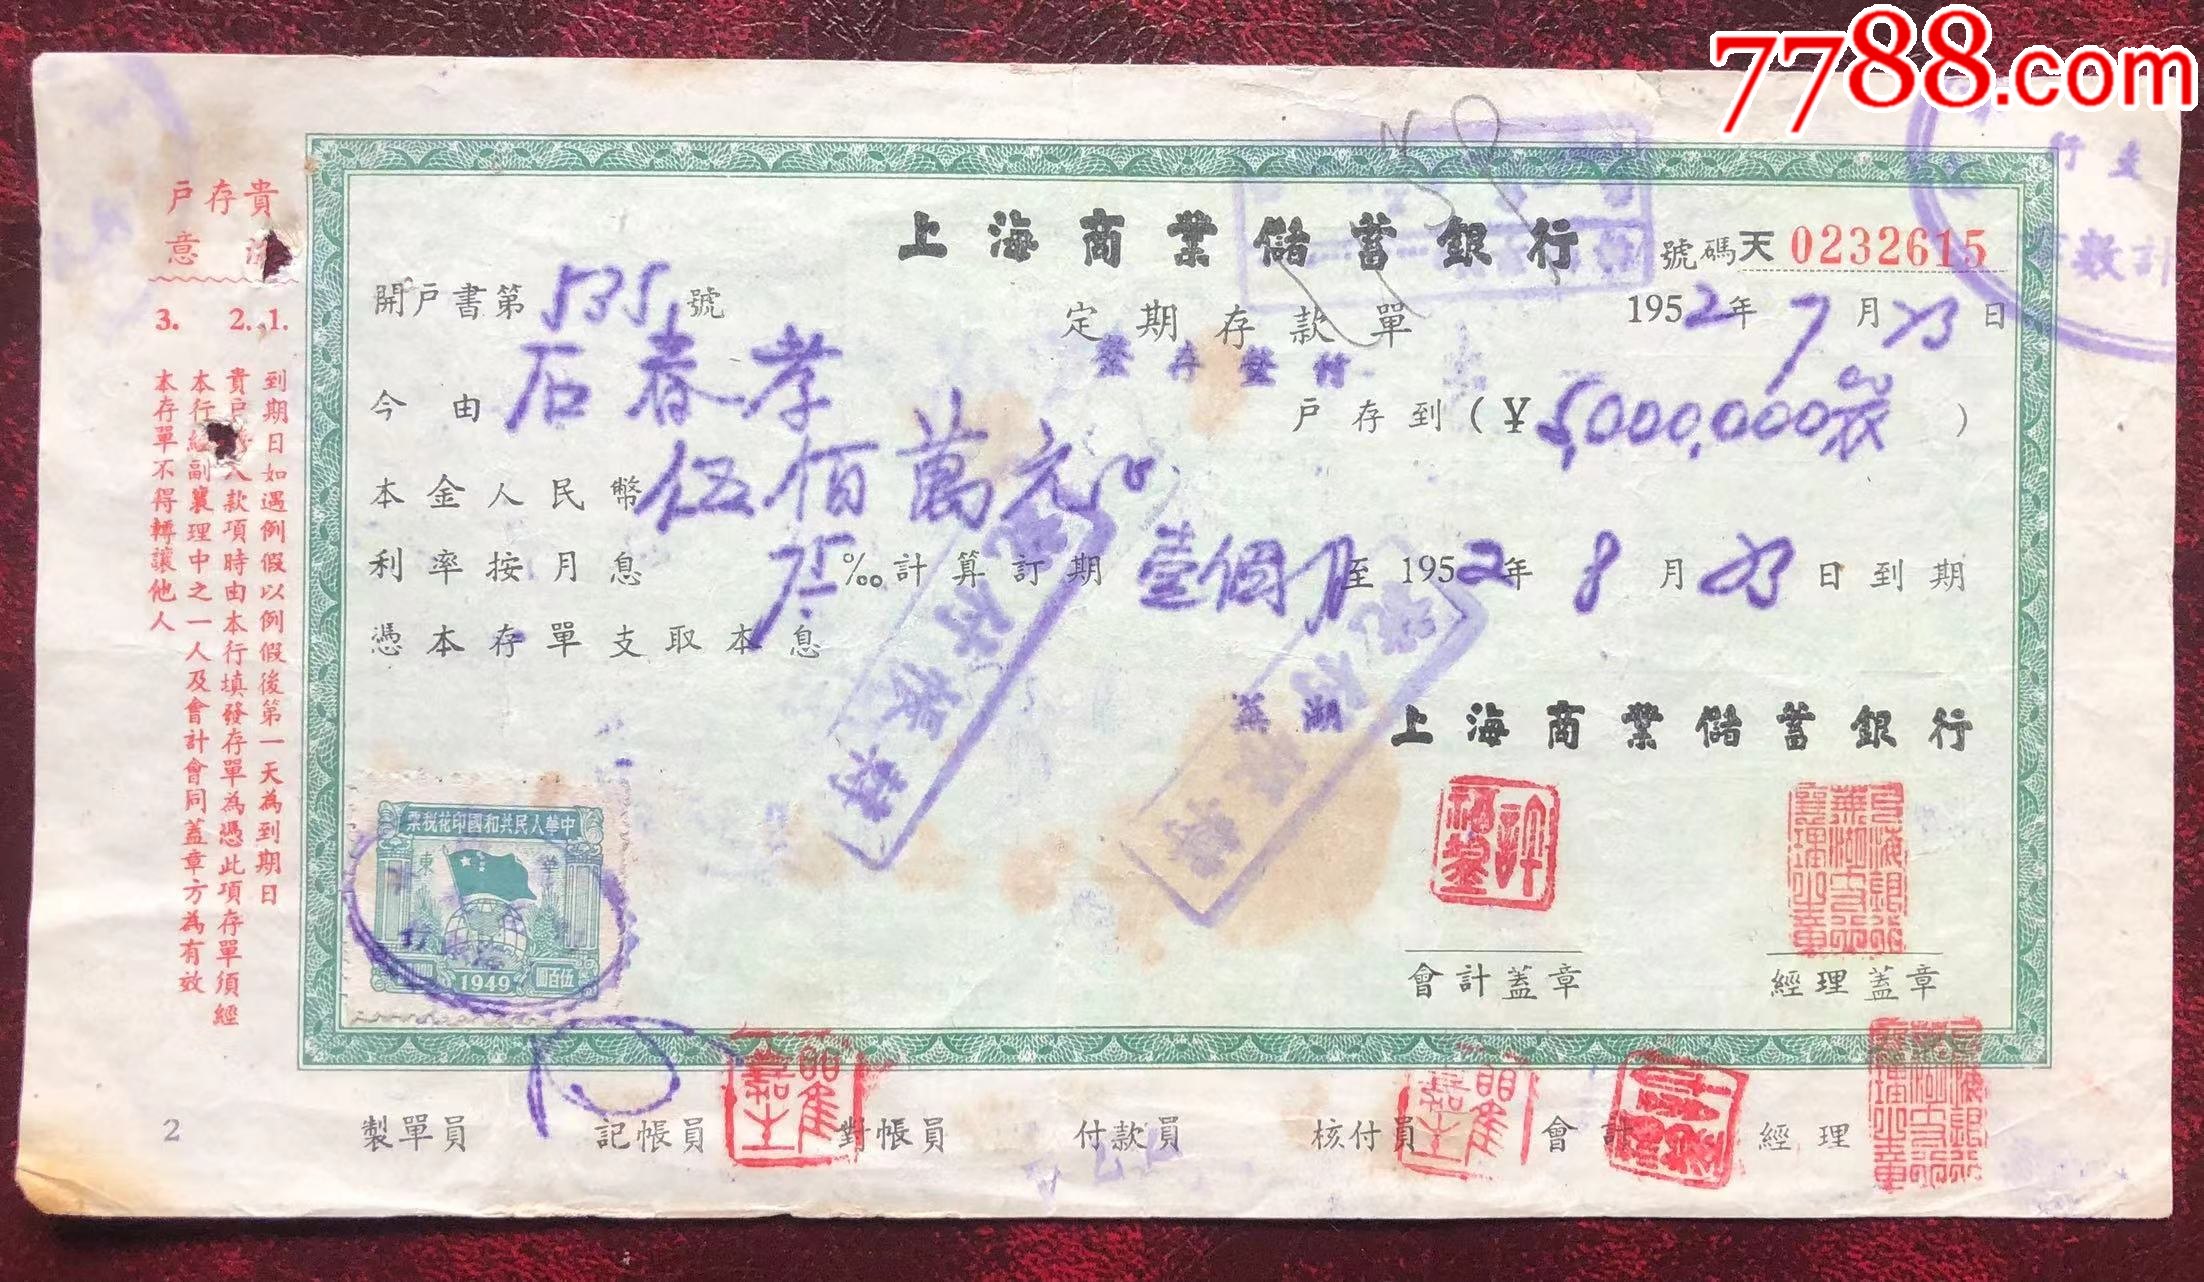 7788.com
上海商業儲蓄銀行
號碼天 0232615
開戶書第535號
定期存款單
1952年7月23日
整存整付
今由石春孝戶存到(¥5,000,000)
本金人民幣伍佰萬元
利率按月息75‰計算訂期壹個月至1952年8月23日到期
憑本存單支取本息
蕪湖上海商業儲蓄銀行
會計蓋章
經理蓋章
中華人民共和國印花稅票
華東
1949
伍百圓
貴存戶
意
1. 到期日如遇例假以例假後第一天為到期日
2. 貴戶入款項時由本行填發存單為憑此項存單須經
本行經副襄理中之一人及會計會同蓋章方為有效
3. 本存單不得轉讓他人
2
製單員 記帳員 對帳員 付款員 核付員 會計 經理